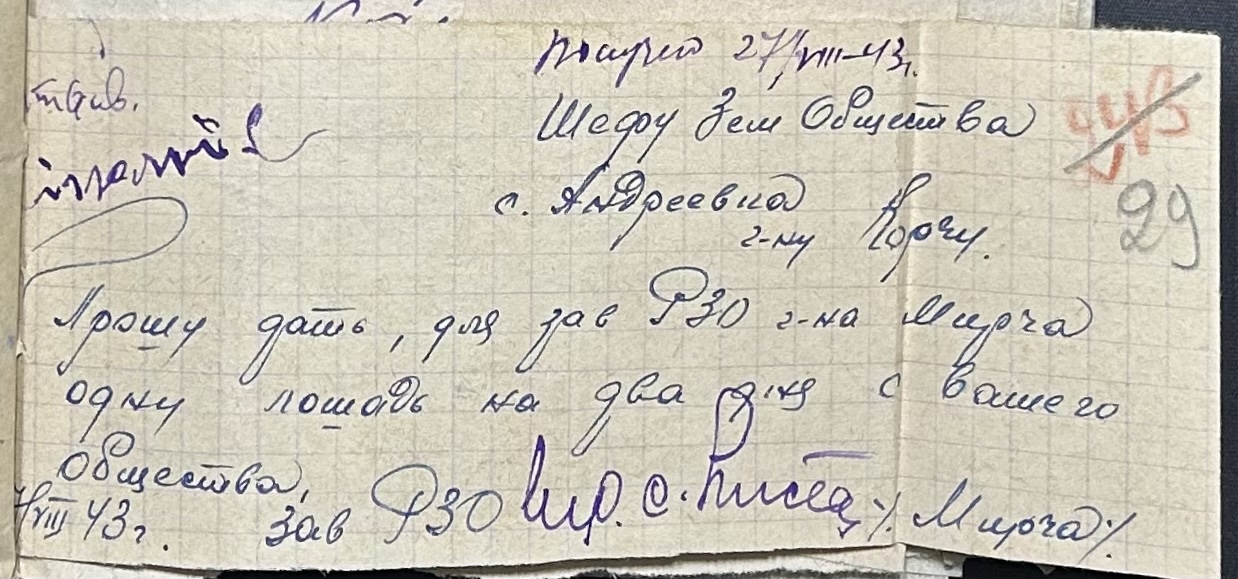 27/VIII-43г.
Шефу Зем Общества
с. Андреевка
г-ну Корчу.
29
Прошу дать, для зав РЗО г-на Мирча
одну лошадь на два дня с вашего
Общества,
VIII 43г. Зав РЗО /. Мирча /.